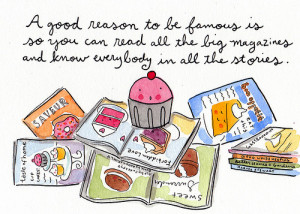 A good reason to be famous is
so you can read all the big magazines
and know everybody in all the stories.
SAVEUR
taste of home
Forbidden Love
Sweet
Surrender